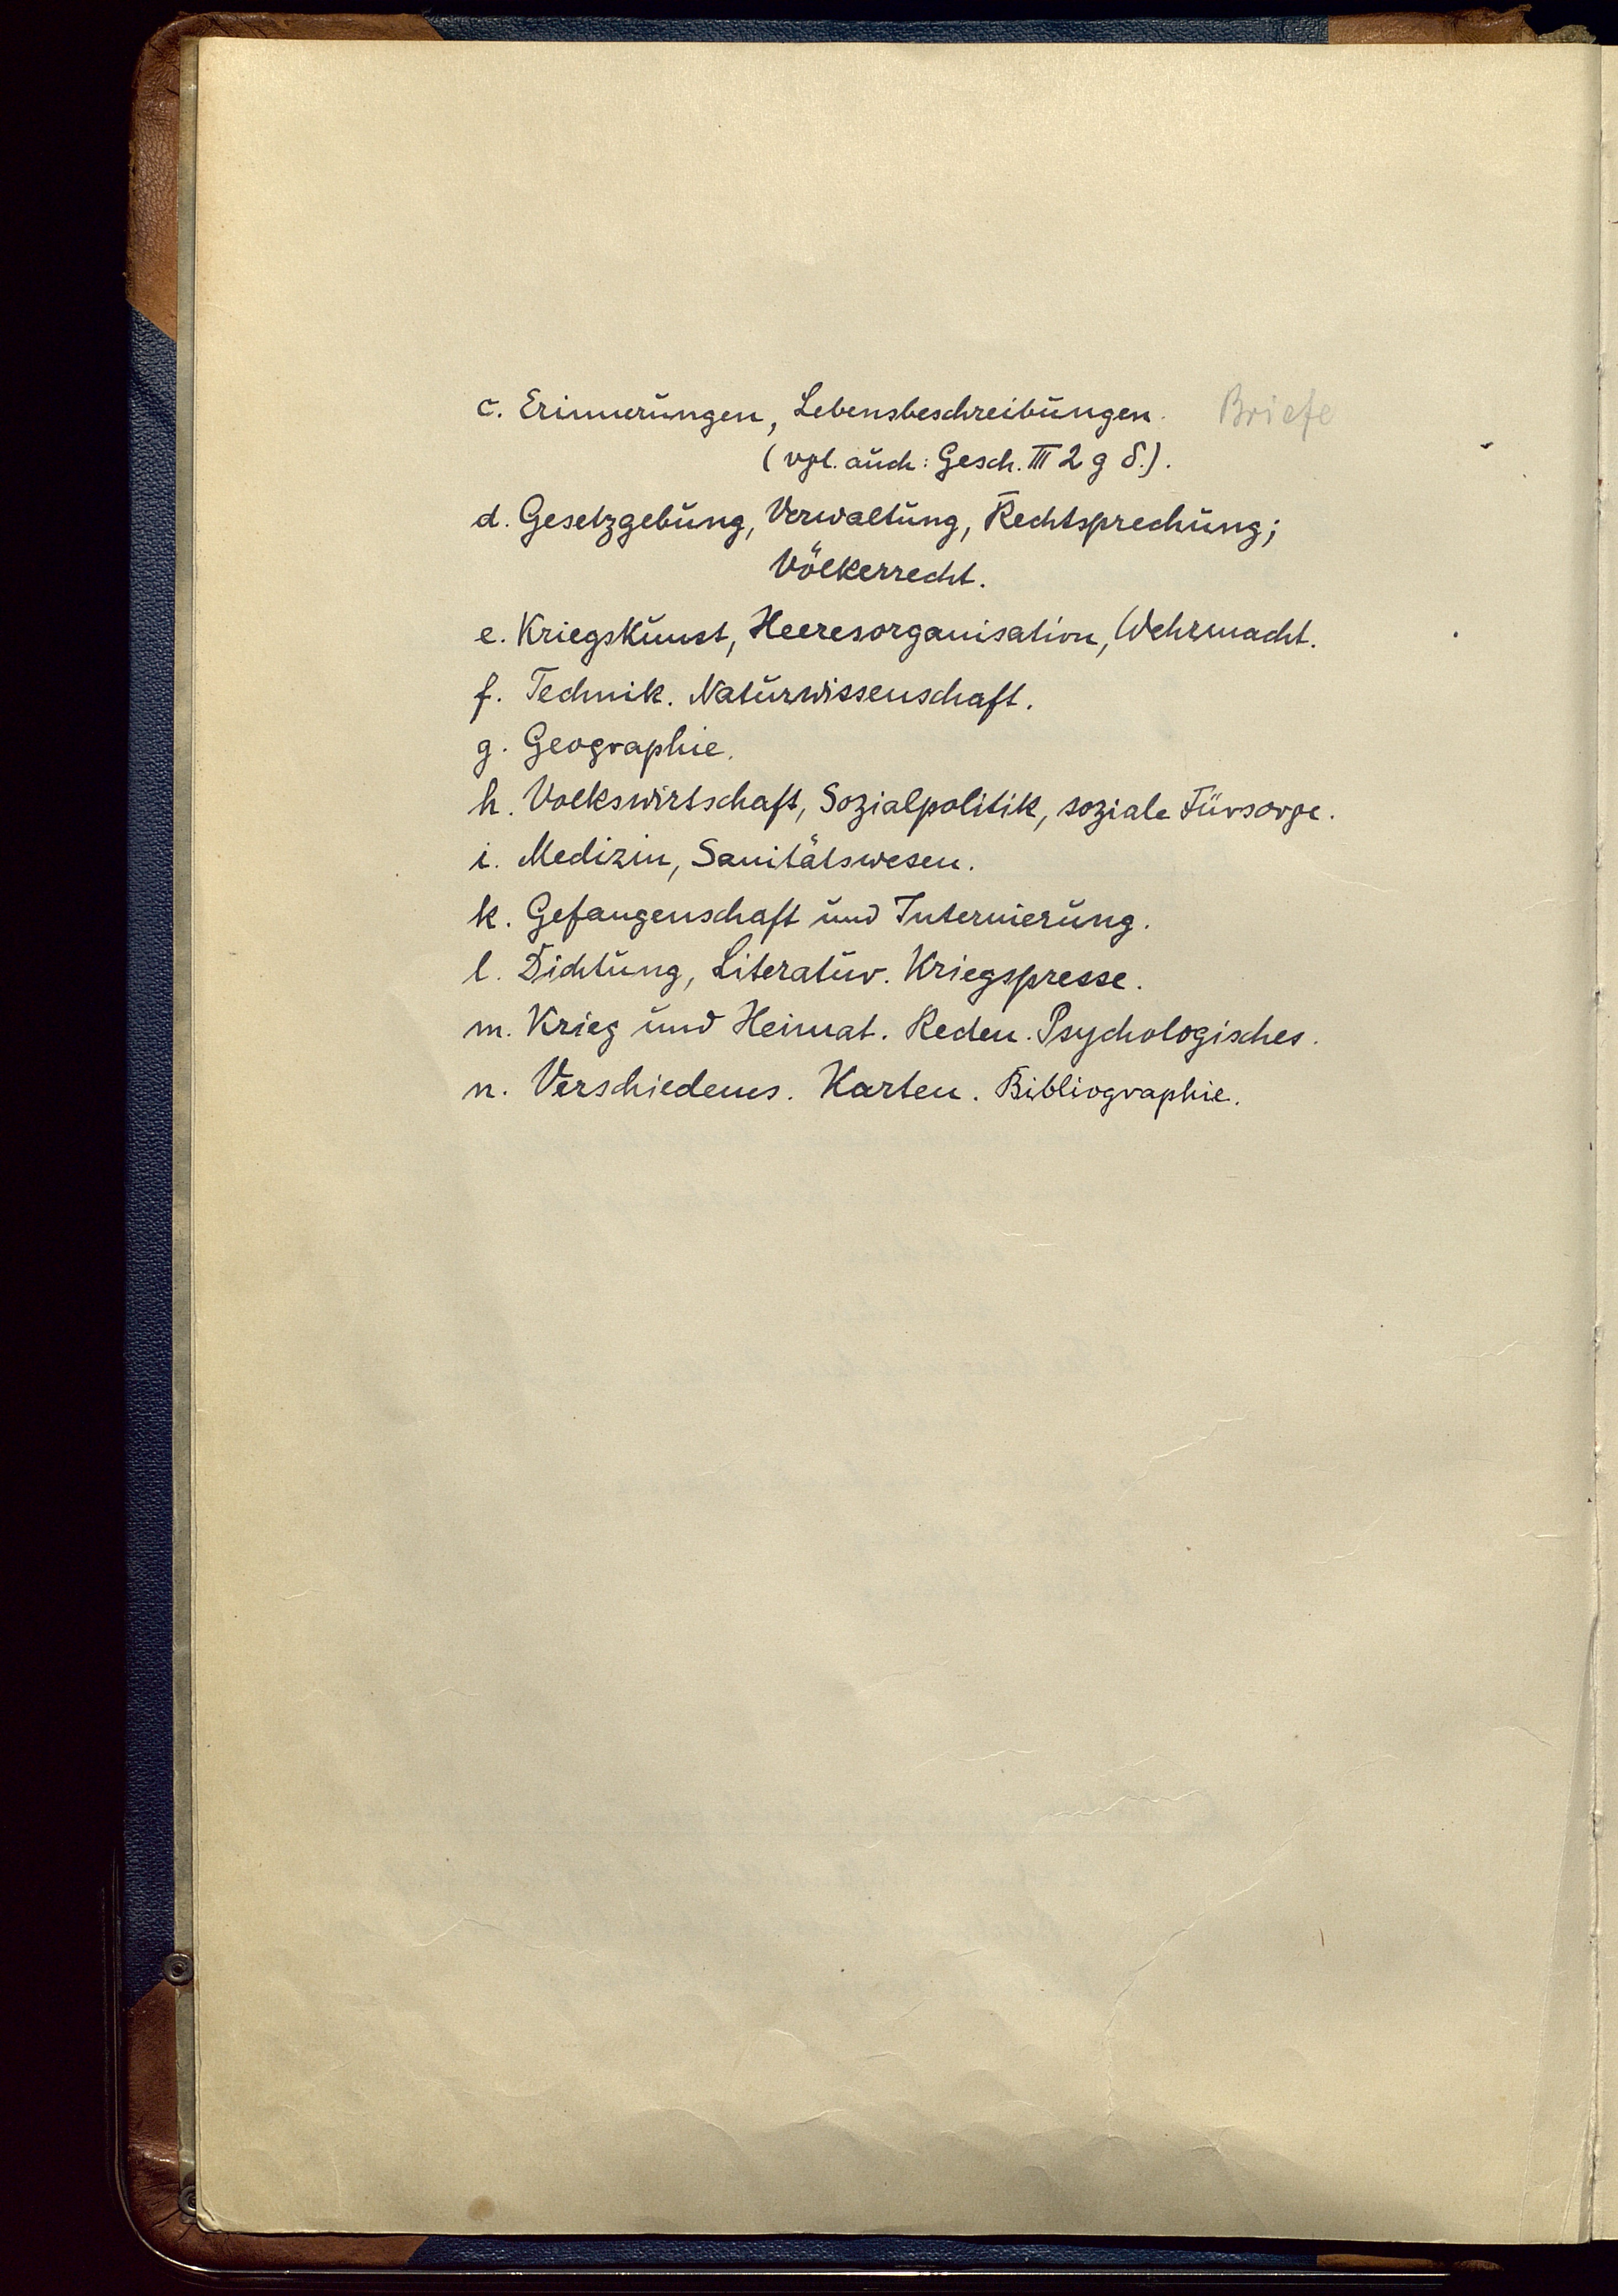 c. Erinnerungen, Lebensbeschreibungen. Briefe
(vgl. auch: Gesch. III 2 g δ.).
d. Gesetzgebung, Verwaltung, Rechtsprechung;
Völkerrecht.
e. Kriegskunst, Heeresorganisation, Wehrmacht.
f. Technik. Naturwissenschaft.
g. Geographie.
h. Volkswirtschaft, Sozialpolitik, soziale Fürsorge.
i. Medizin, Sanitätswesen.
k. Gefangenschaft und Internierung.
l. Dichtung, Literatur. Kriegspresse.
m. Krieg und Heimat. Reden. Psychologisches.
n. Verschiedenes. Karten. Bibliographie.